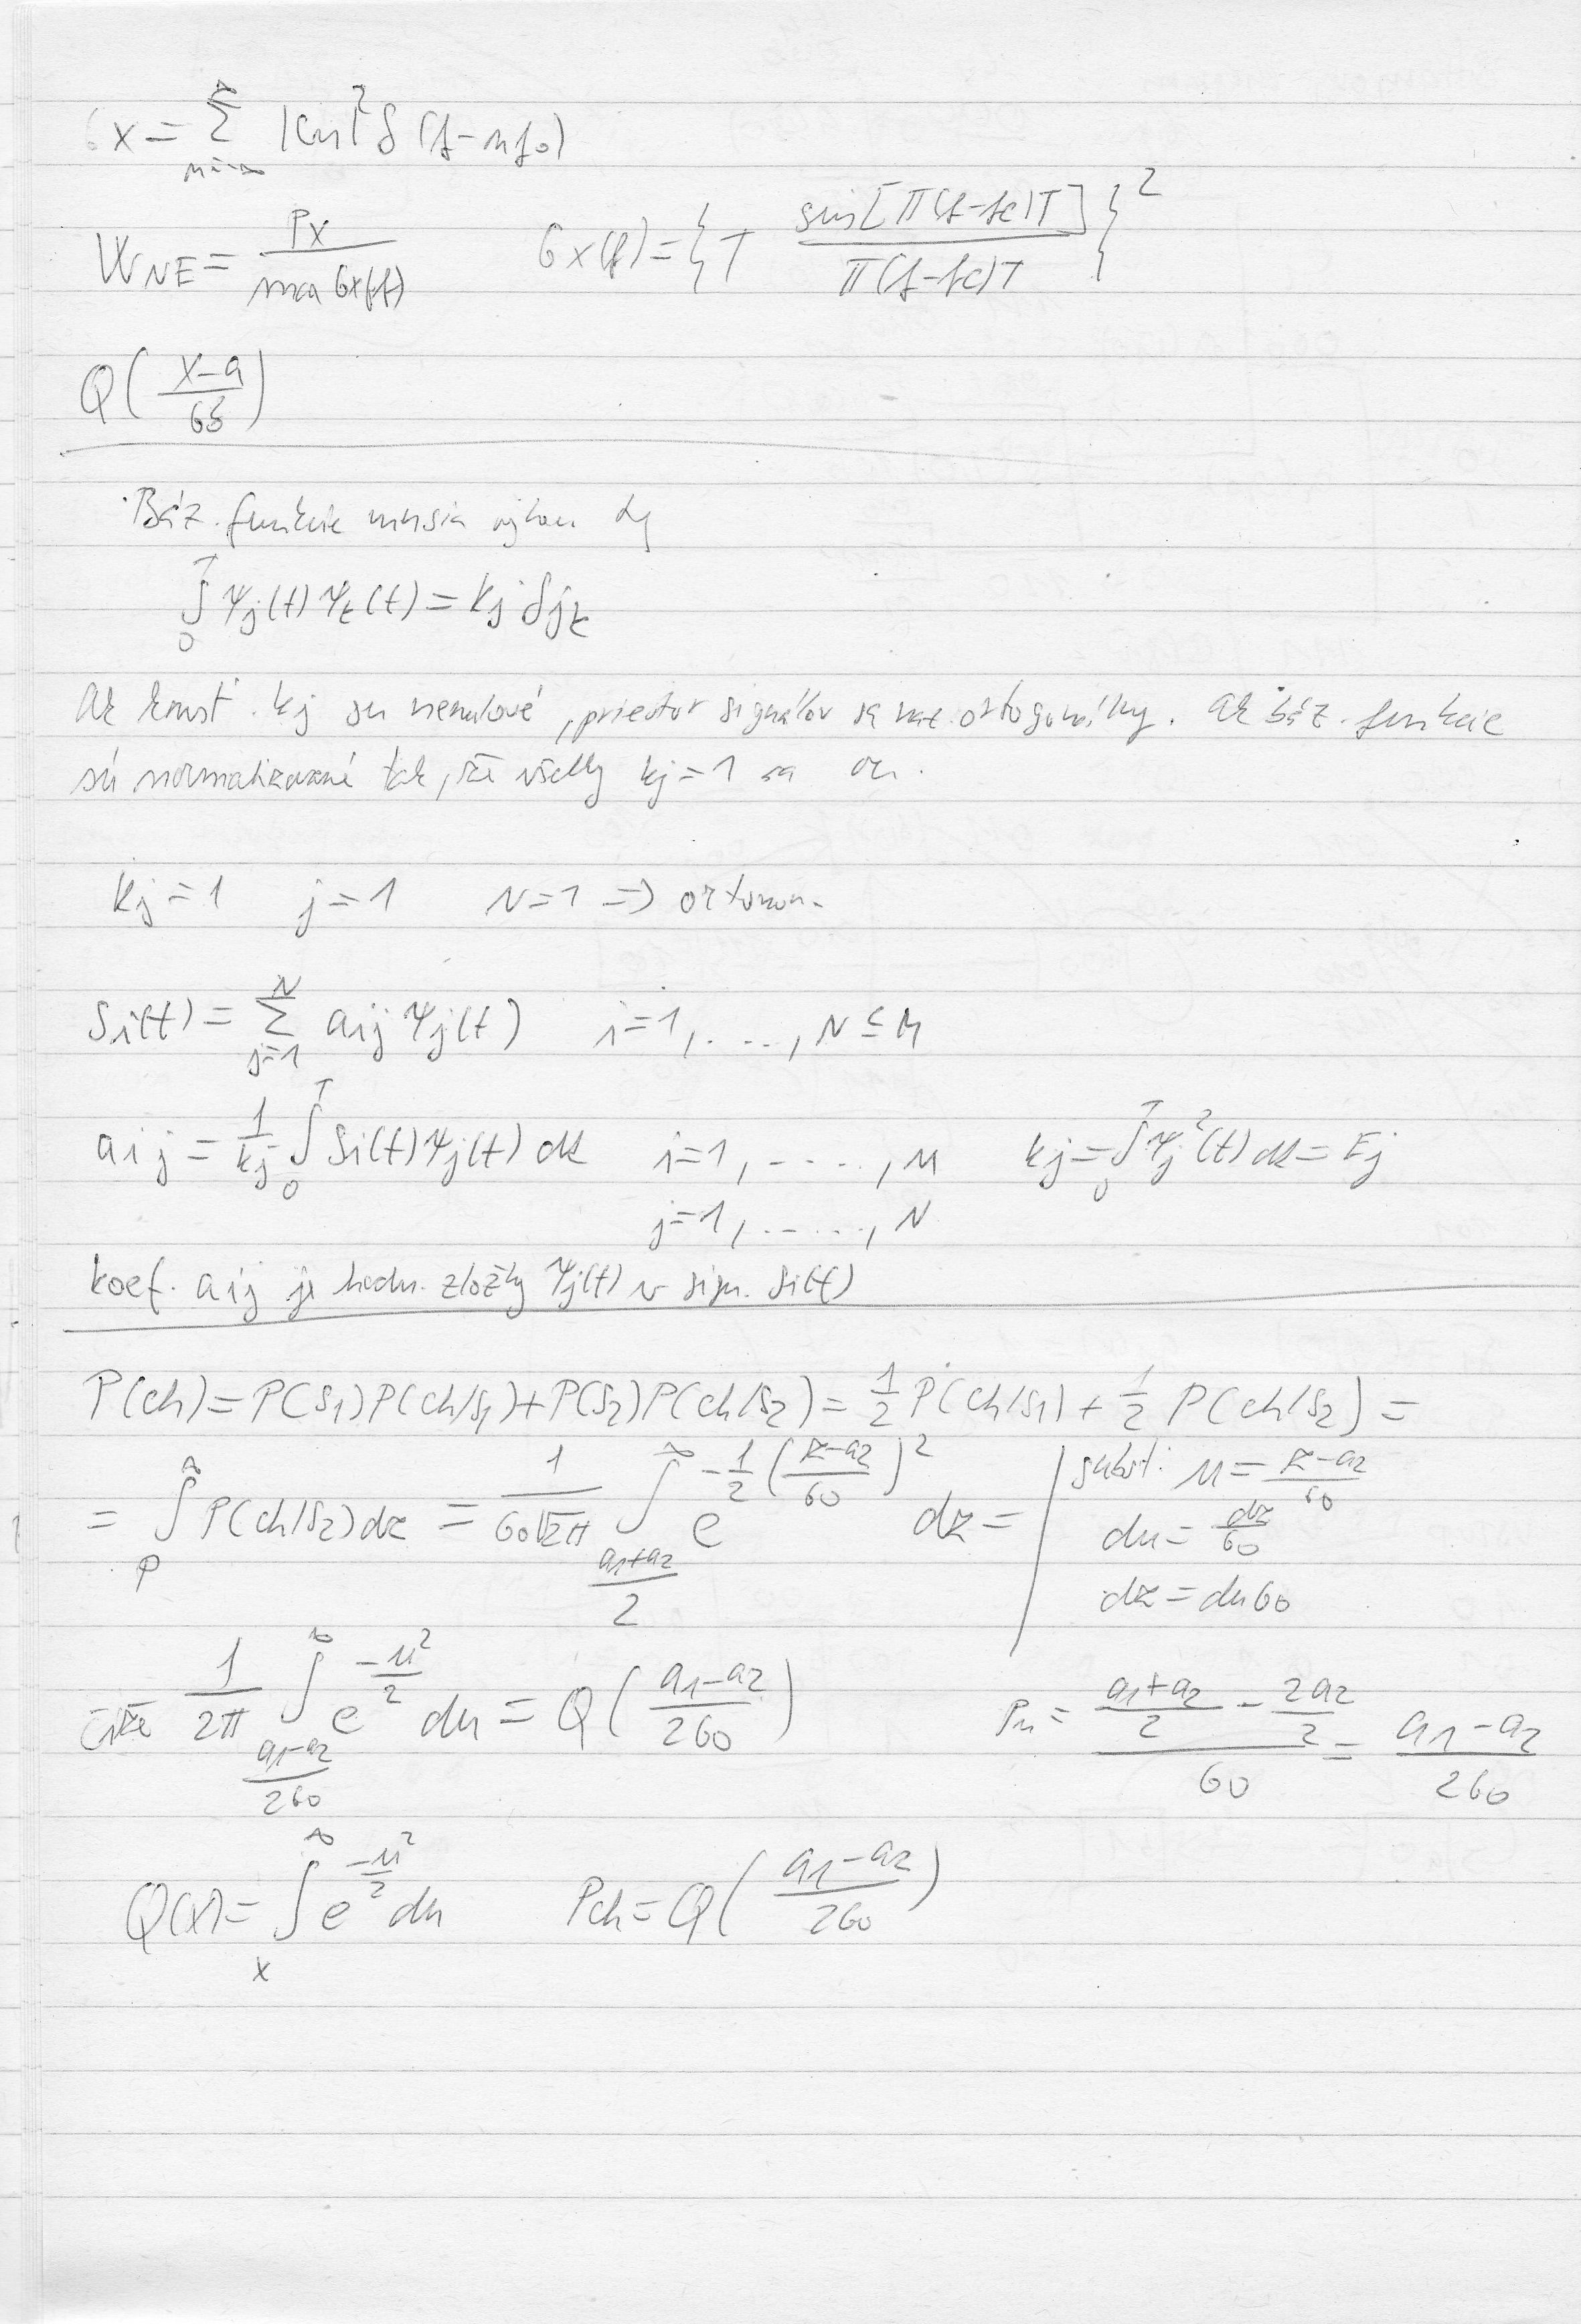 Gx = ∑_{n=-∞}^{∞} |Cn|² δ(f-nf₀)
W_NE = Px / max Gx(f)    Gx(f) = { T sin[π(f-fc)T] / π(f-fc)T }²
Q( (x-a) / σ )
Báz. funkcie musia
∫₀ᵀ ψj(t) ψk(t) = kj δjk
ak konšt. kj su nenulové, priestor signálov sa naz. ortogonálny. ak báz. funkcie
sú normalizované tak, že všetky kj = 1 sa on.
kj = 1    j = 1    N = 1 => ortonon.
Si(t) = ∑_{j=1}^{N} aij ψj(t)    i = 1, ...., N ≤ M
aij = 1/kj ∫₀ᵀ Si(t) ψj(t) dt    i = 1, ....., M    kj = ∫₀ᵀ ψj²(t) dt = Ej
j = 1, ....., N
koef. aij je hodn. zložky ψj(t) v sign. Si(t)
P(ch) = P(s₁)P(ch/s₁) + P(s₂)P(ch/s₂) = 1/2 P(ch/s₁) + 1/2 P(ch/s₂) =
= ∫_ρ^∞ P(ch/s₂) dz = 1/(σ₀√2π) ∫_{(a₁+a₂)/2}^∞ e^{-1/2 ((z-a₂)/σ₀)²} dz = | subst: u = (z-a₂)/σ₀
du = dz/σ₀
dz = du σ₀
čiže 1/2π ∫_{(a₁-a₂)/2σ₀}^∞ e^{-u²/2} du = Q( (a₁-a₂) / 2σ₀ )    ρu = ( (a₁+a₂)/2 - 2a₂/2 ) / σ₀ = (a₁-a₂) / 2σ₀
Q(x) = ∫_x^∞ e^{-u²/2} du    Pch = Q( (a₁-a₂) / 2σ₀ )